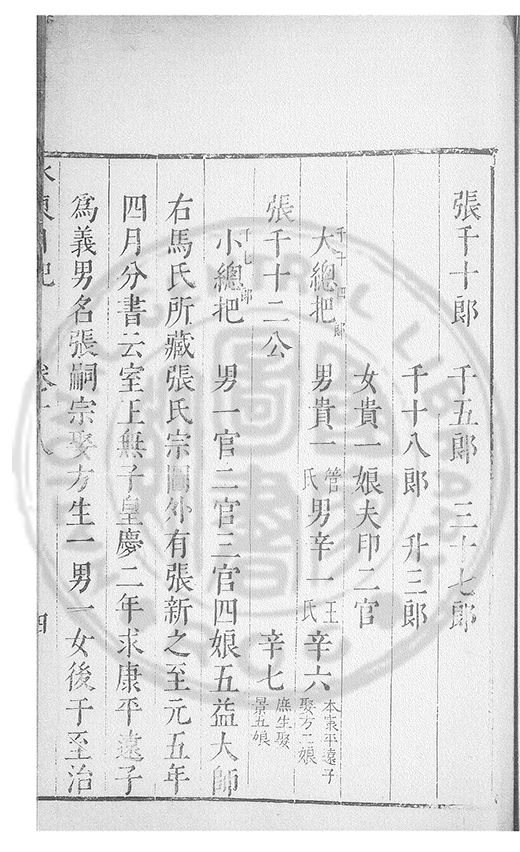 張千十郎　千五郎　三十七郎
千十八郎　升三郎
女貴一娘夫印二官
千十四郎
大總把　男貴一管氏男辛一王氏辛六本康平遠子娶方二娘
張千十二公　辛七庶生娶景五娘
小總把　男一官二官三官四娘五益大師
右馬氏所藏張氏宗圖外有張新之至元五年
四月分書云室王無子皇慶二年求康平遠子
爲義男名張嗣宗娶方生一男一女後于至治
水東日記　卷十八　四